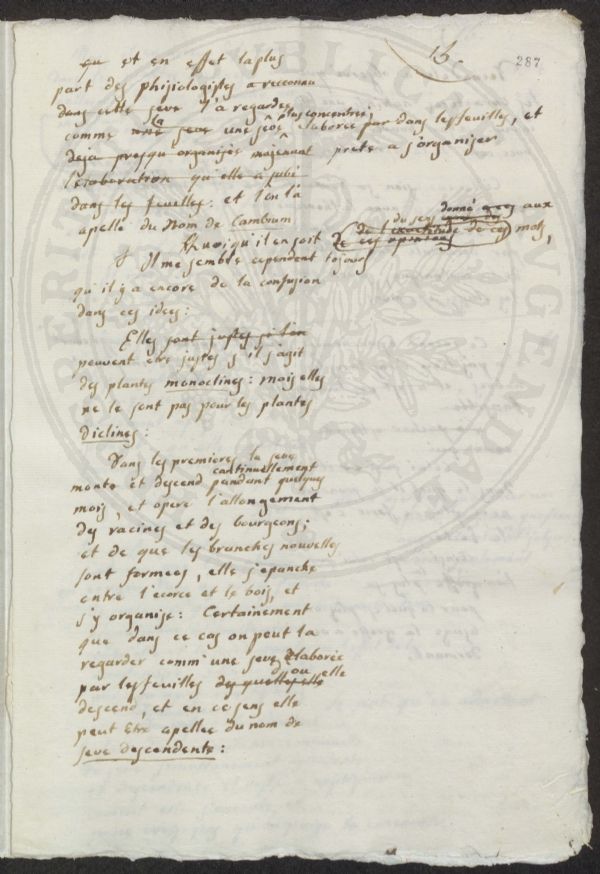 15.
287
qu et en effet la plus
part des phisiologistes a reconnu
dans cette seve l'a regardée
comme une la seve une seve plus concentrée, elaborée par dans les feuilles, et
deja presqu organisée moiennant prete a s'organiser
l'elaboration qu'elle a subi
dans les feuilles: et l'on l'a
apellé du Nom de Cambium
Quoiqu'il en soit de ces opinions du sens donné aux
de l'exactitude de ces mots,
Il me semble cependent tojours
qu'il y a encore de la confusion
dans ces idees:
Elles sont justes si l'on
peuvent etre justes s'il s'agit
des plantes monoclines: mais elles
ne le sont pas pour les plantes
diclines:
Dans les premieres la seve
monte et descend continuellement pendant quelques
mois, et opere l'allongement
des racines et des bourgeons;
et de que les branches nouvelles
sont formees, elle s'epanche
entre l'ecorce et le bois, et
s'y organise: Certainement
que dans ce cas on peut la
regarder comm'une seve elaborée
par les feuilles des quelles elle d'ou elle
descend, et en ce sens elle
peut etre apellee du nom de
seve descendente: